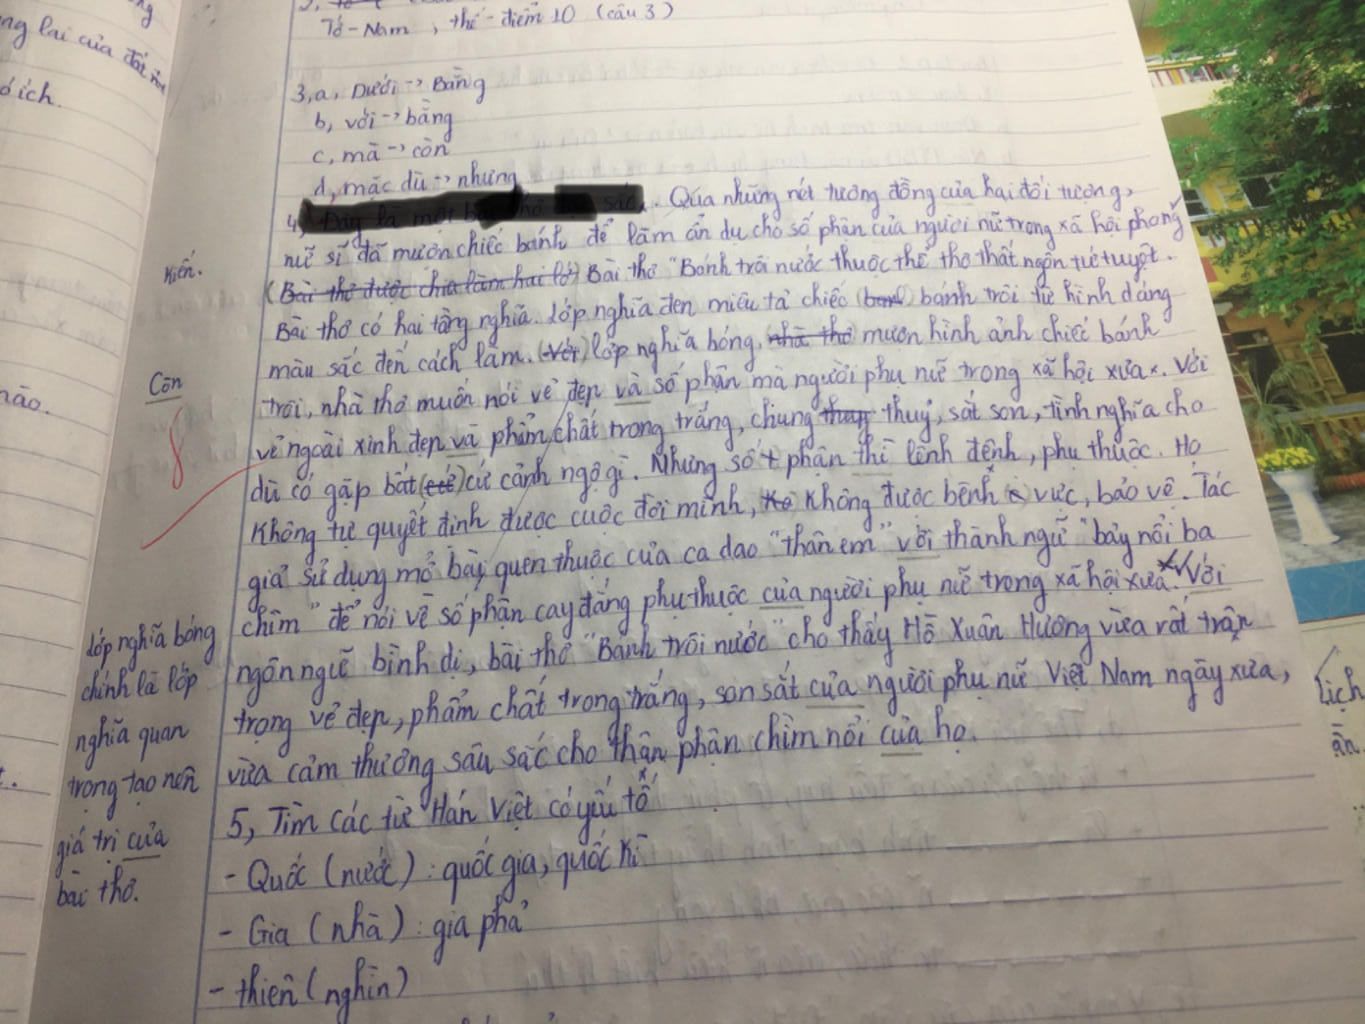 ng lai của đất nước
ó ích.
Tố - Nam, thế - điểm 10 (câu 3)
3, a, Dưới -> Bằng
b, với -> bằng
c, mà -> còn
d, mặc dù -> nhưng
4, Qua những nét tương đồng của hai đối tượng,
nữ sĩ đã mượn chiếc bánh để làm ẩn dụ cho số phận của người nữ trong xã hội phong
kiến.
(Bài thơ được chia làm hai lớ) Bài thơ "Bánh trôi nước thuộc thể thơ thất ngôn tứ tuyệt.
Bài thơ có hai tầng nghĩa. Lớp nghĩa đen miêu tả chiếc bánh trôi từ hình dáng
màu sắc đến cách làm. (Với) lớp nghĩa bóng, nhà thơ mượn hình ảnh chiếc bánh
Còn
trôi, nhà thơ muốn nói vẻ đẹp và số phận mà người phụ nữ trong xã hội xưa. Với
vẻ ngoài xinh đẹp và phẩm chất trong trắng, chung thuy thuỷ, sắt son, tình nghĩa cho
8
dù có gặp bất cứ cảnh ngộ gì. Nhưng số phận thì lênh đênh, phụ thuộc. Họ
không tự quyết định được cuộc đời mình, không được bênh vực, bảo vệ. Tác
giả sử dụng mở bài quen thuộc của ca dao "thân em" với thành ngữ "bảy nổi ba
chìm" để nói về số phận cay đắng phụ thuộc của người phụ nữ trong xã hội xưa. Với
ngôn ngữ bình dị, bài thơ "Bánh trôi nước" cho thấy Hồ Xuân Hương vừa rất trân
trọng vẻ đẹp, phẩm chất trong trắng, son sắt của người phụ nữ Việt Nam ngày xưa,
vừa cảm thương sâu sắc cho thân phận chìm nổi của họ.
lớp nghĩa bóng
chính là lớp
nghĩa quan
trọng tạo nên
giá trị của
bài thơ.
5, Tìm các từ Hán Việt có yếu tố
- Quốc (nước): quốc gia, quốc kì
- Gia (nhà): gia phả
- thiên (nghìn)
nào.
lịch
ần.